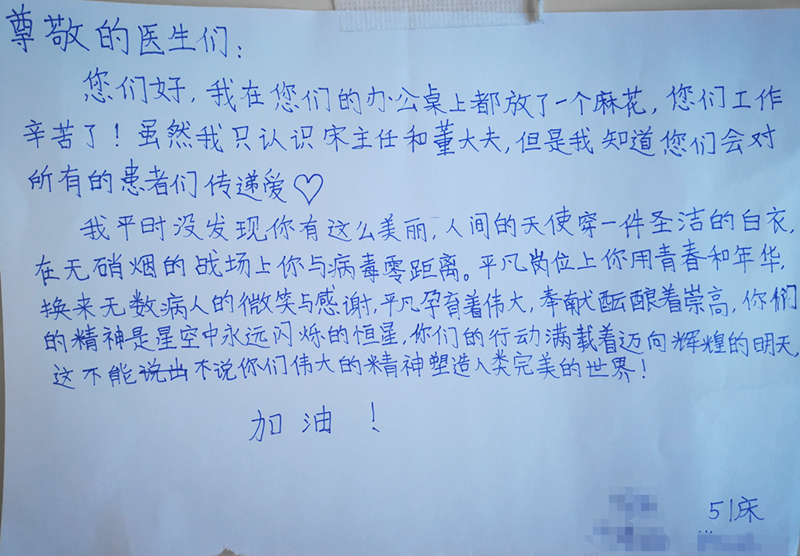 尊敬的医生们:
您们好,我在您们的办公桌上都放了一个麻花,您们工作
辛苦了!虽然我只认识宋主任和董大夫,但是我知道您们会对
所有的患者们传递爱♡
我平时没发现你有这么美丽,人间的天使穿一件圣洁的白衣,
在无硝烟的战场上你与病毒零距离。平凡岗位上你用青春和年华,
换来无数病人的微笑与感谢,平凡孕育着伟大,奉献酝酿着崇高,你们
的精神是星空中永远闪烁的恒星,你们的行动满载着迈向辉煌的明天,
这不能说出不说你们伟大的精神塑造人类完美的世界!
加油!
51床